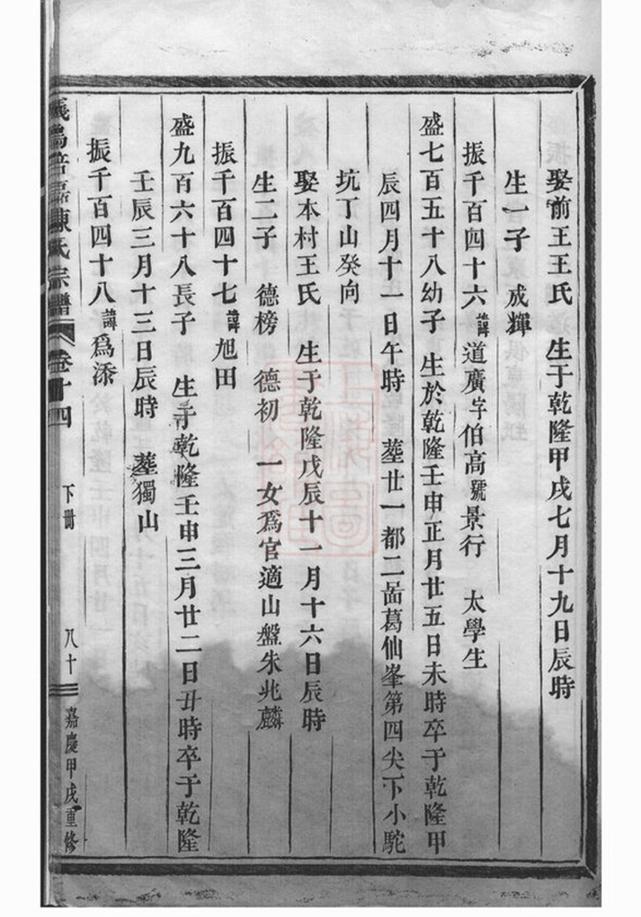 娶前王王氏 生于乾隆甲戌七月十九日辰時
生一子 成輝
振千百四十六 諱道廣字伯高號景行 太學生
盛七百五十八幼子 生於乾隆壬申正月廿五日未時卒于乾隆甲
辰四月十一日午時 塟廿一都二啚葛仙峯第四尖下小駝
坑丁山癸向
娶本村王氏 生于乾隆戊辰十一月十六日辰時
生二子 德榜 德初 一女爲官適山盤朱兆麟
振千百四十七 諱旭田
盛九百六十八長子 生于乾隆壬申三月廿二日丑時卒于乾隆
壬辰三月十三日辰時 塟獨山
振千百四十八 諱爲添
陳氏宗譜 卷十四 下冊 八十 嘉慶甲戌重修